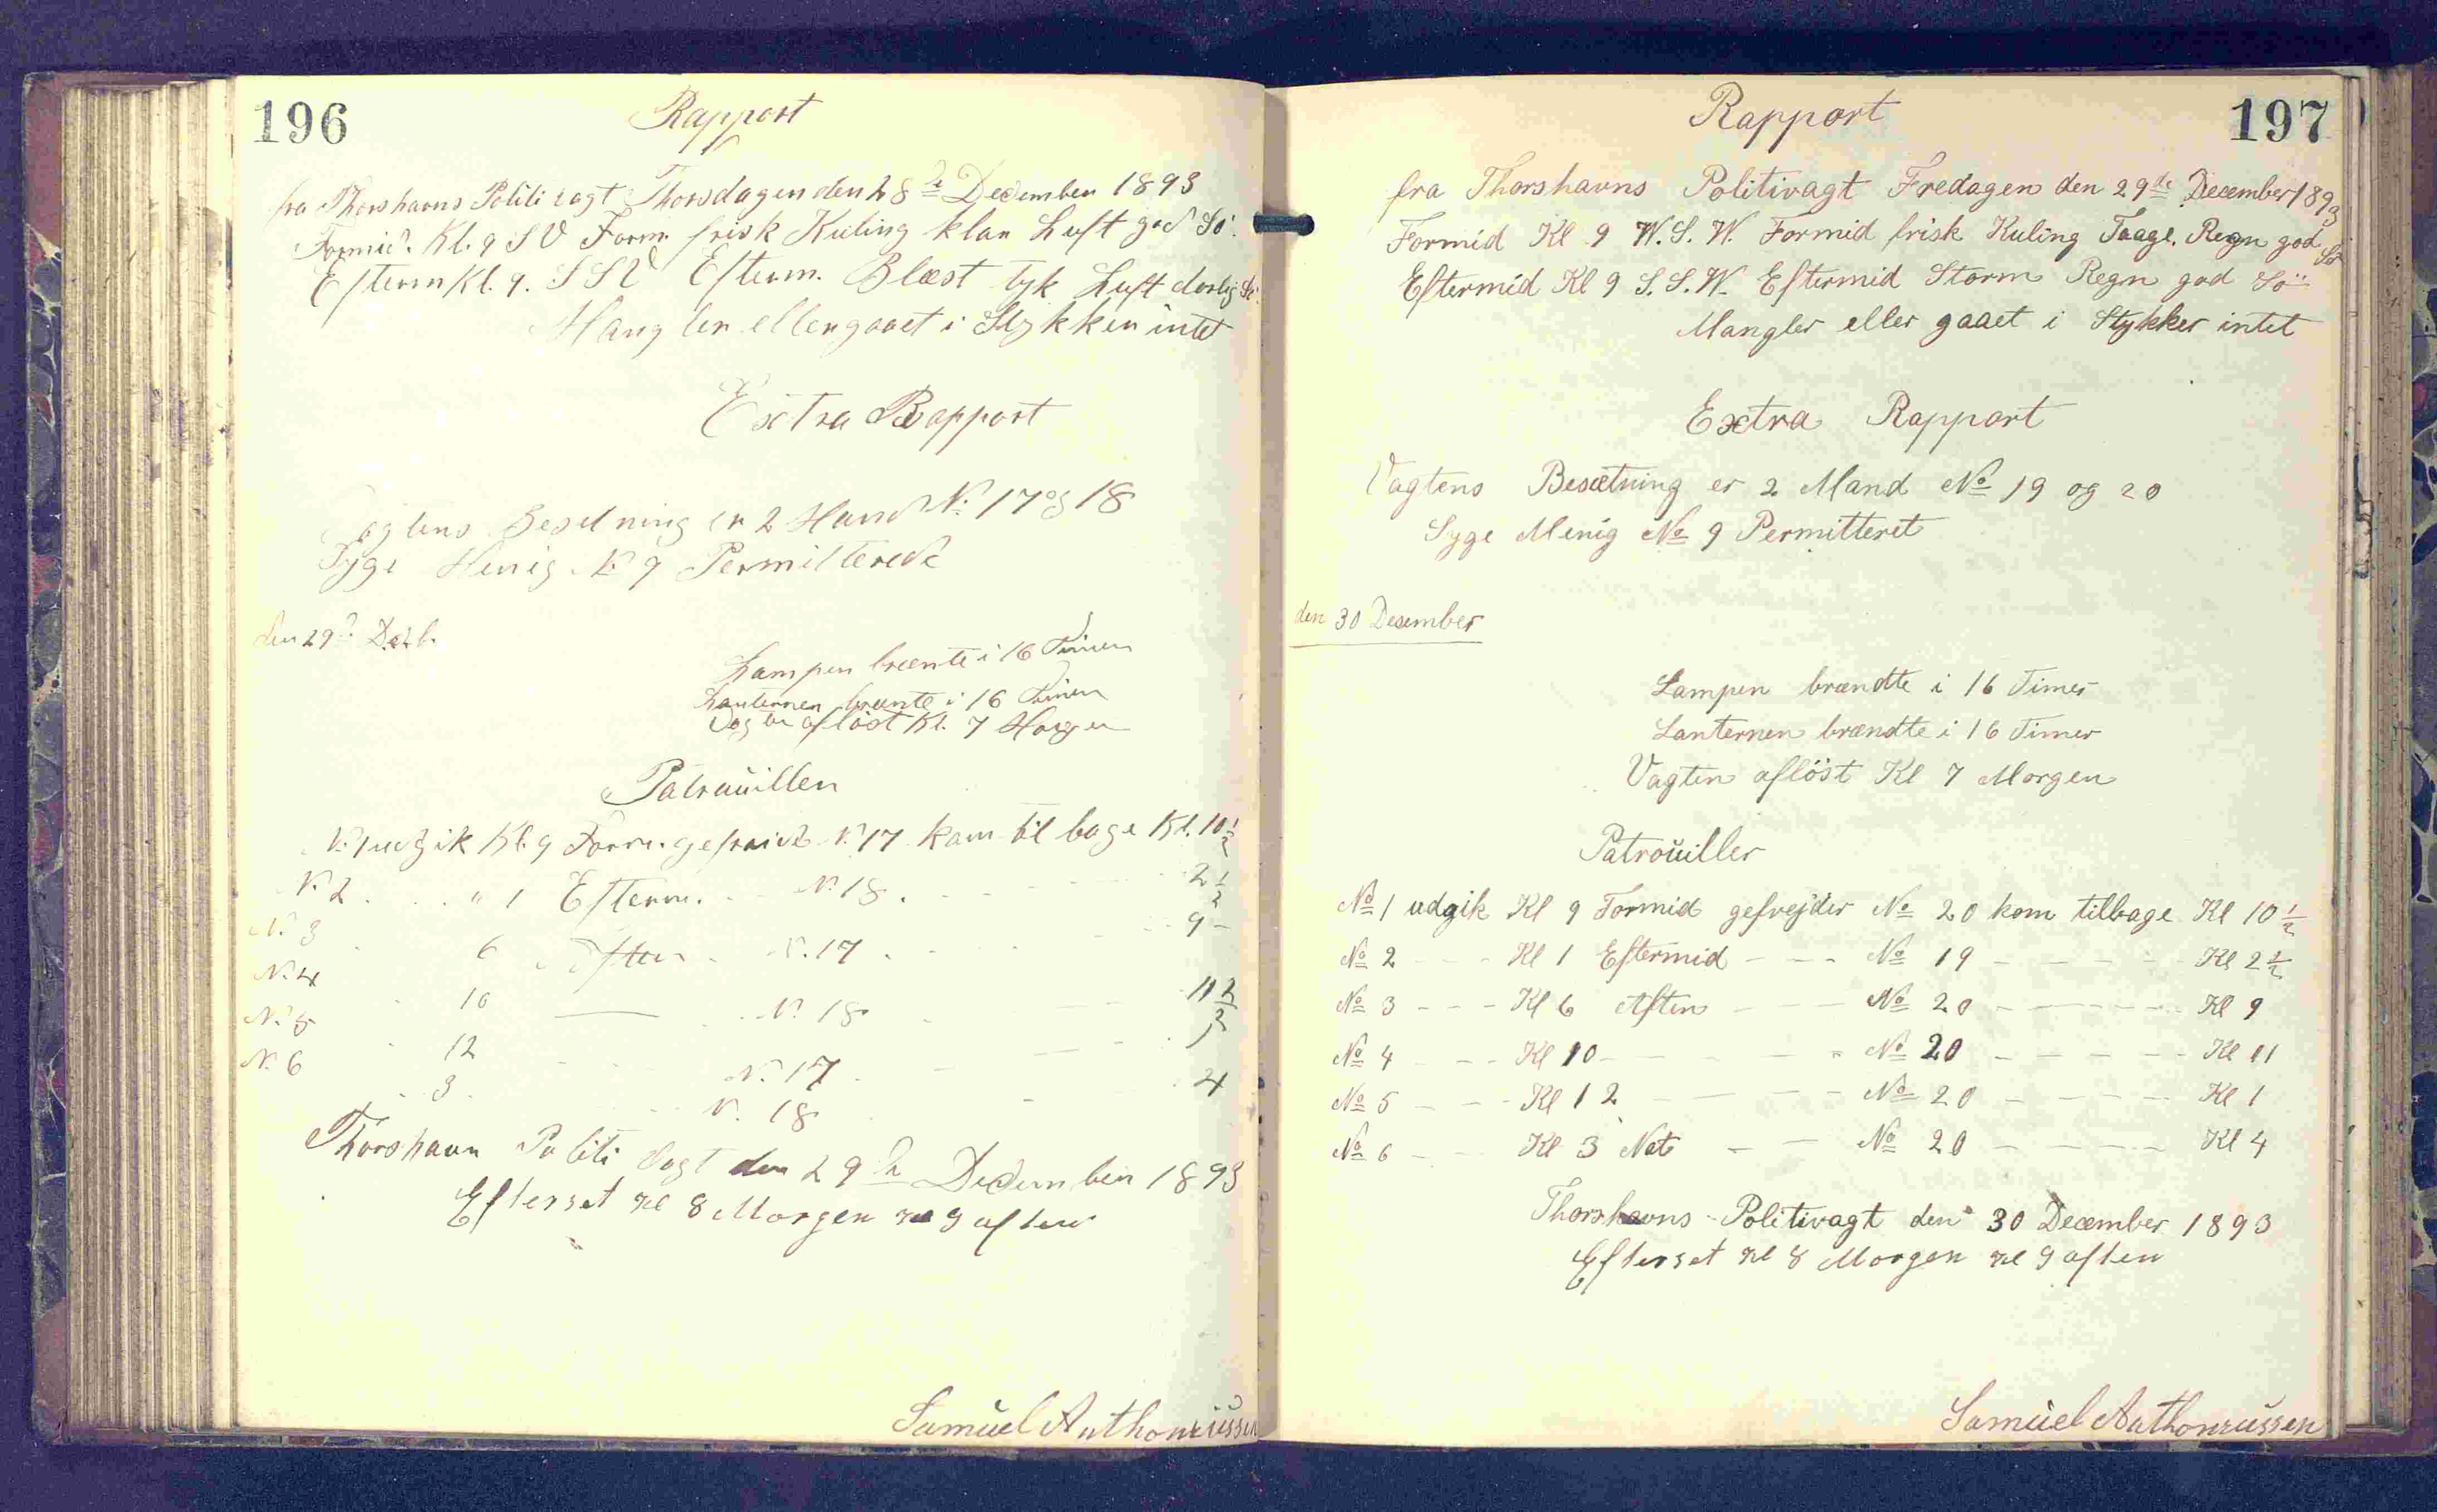 196
Rapport
fra Thorshavns Politivagt Thorsdagen den 28de December 1893
Formid. Kl. 9 SV Form. frisk Kuling klar Luft god Sö.
Efterm Kl. 9. SSV Efterm. Blæst tyk Luft dorlig Sö.
Mangler eller gaaet i Stykker intet
Extra Rapport
Vagtens Besetning er 2 Mand No. 17 og 18
Syge Menig No 9 Permitterede
den 29d. Decb.
Lampen brænte i 16 Timer
Lanternen brænte i 16 Timer
Vagten aflöst Kl. 7 Morgen
Patrouiller
No. 1 udgik Kl. 9 Form. gefraider No. 17 kom til bage Kl. 10 1/2
No. 2 . . . " 1 Efterm. - No. 18 . - - - 2 1/2
No. 3 6 Aften - No. 17 . - - 9 -
No. 4 10 — No. 18 - - 11 1/2
No. 5 12 - No. 17 - - 1
No. 6 3 - No. 18 - 4
Thorshavn Politi Vagt den 29de December 1893
Efterset Kl 8 Morgen Kl 9 aften
Samüel Anthoniüssen
197
Rapport
fra Thorshavns Politivagt Fredagen den 29de December 1893
Formid Kl 9 W.S.W. Formid frisk Kuling Taage. Regn god Sö
Eftermid Kl 9 S.S.W. Eftermid Storm Regn god Sö
Mangler eller gaaet i Stykker intet
Extra Rapport
Vagtens Besætning er 2 Mand No 19 og 20
Syge Menig No 9 Permitteret
den 30 Desember
Lampen brændte i 16 Timer
Lanternen brændte i 16 Timer
Vagten aflöst Kl 7 Morgen
Patroüiller
No 1 udgik Kl 9 Formid gefrejder No 20 kom tilbage Kl 10 1/2
No 2 - - - Kl 1 Eftermid - - - No 19 - - - - Kl 2 1/2
No 3 - - - Kl 6 Aften - - No 20 - - - - Kl 9
No 4 - - - Kl 10 - - - - No 20 - - - - Kl 11
No 5 - - - Kl 12 - - - - No 20 - - - - Kl 1
No 6 - - Kl 3 Nat - - No 20 - - - - Kl 4
Thorshavns Politivagt den 30 December 1893
Efterset Kl 8 Morgen Kl 9 aften
Samüel Anthoniussen